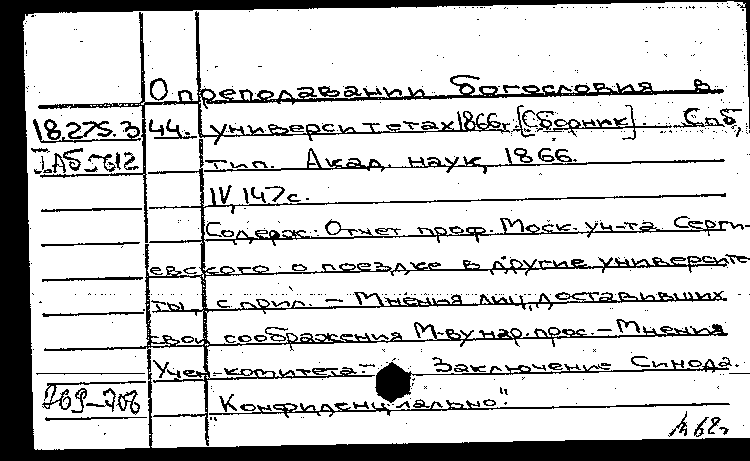 О преподавании богословия в
18.275.3 44. университетах 1866г. [Сборник]. Спб,
тип. Акад. наук, 1866.
IV, 147 с.
Содерж.: Отчет проф. Моск. ун-та Серги-
евского о поездке в другие университе-
ты, с прил. – Мнения лиц, доставивших
свои соображения М-ву нар. прос. – Мнения
Учен. комитета – Заключение Синода.
"Конфиденциально".